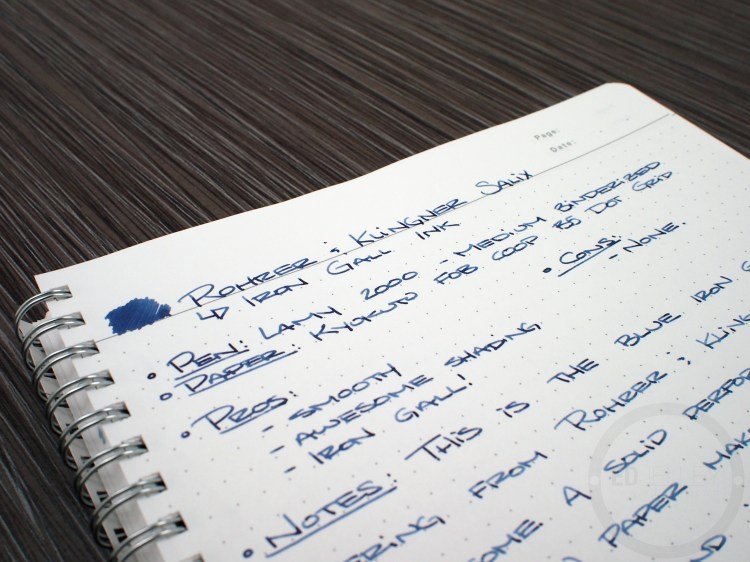 Page:
Date:
ROHRER & KLINGNER SALIX
↳ IRON GALL INK
• PEN: LAMY 2000 - MEDIUM BINDERIZED
• PAPER: KYOKUTO FOB COOP B5 DOT GRID
• PROS:
- SMOOTH
- AWESOME SHADING
- IRON GALL!
• CONS:
- NONE.
• NOTES: THIS IS THE BLUE IRON
FROM ROHRER &
A SOLID
PAPER